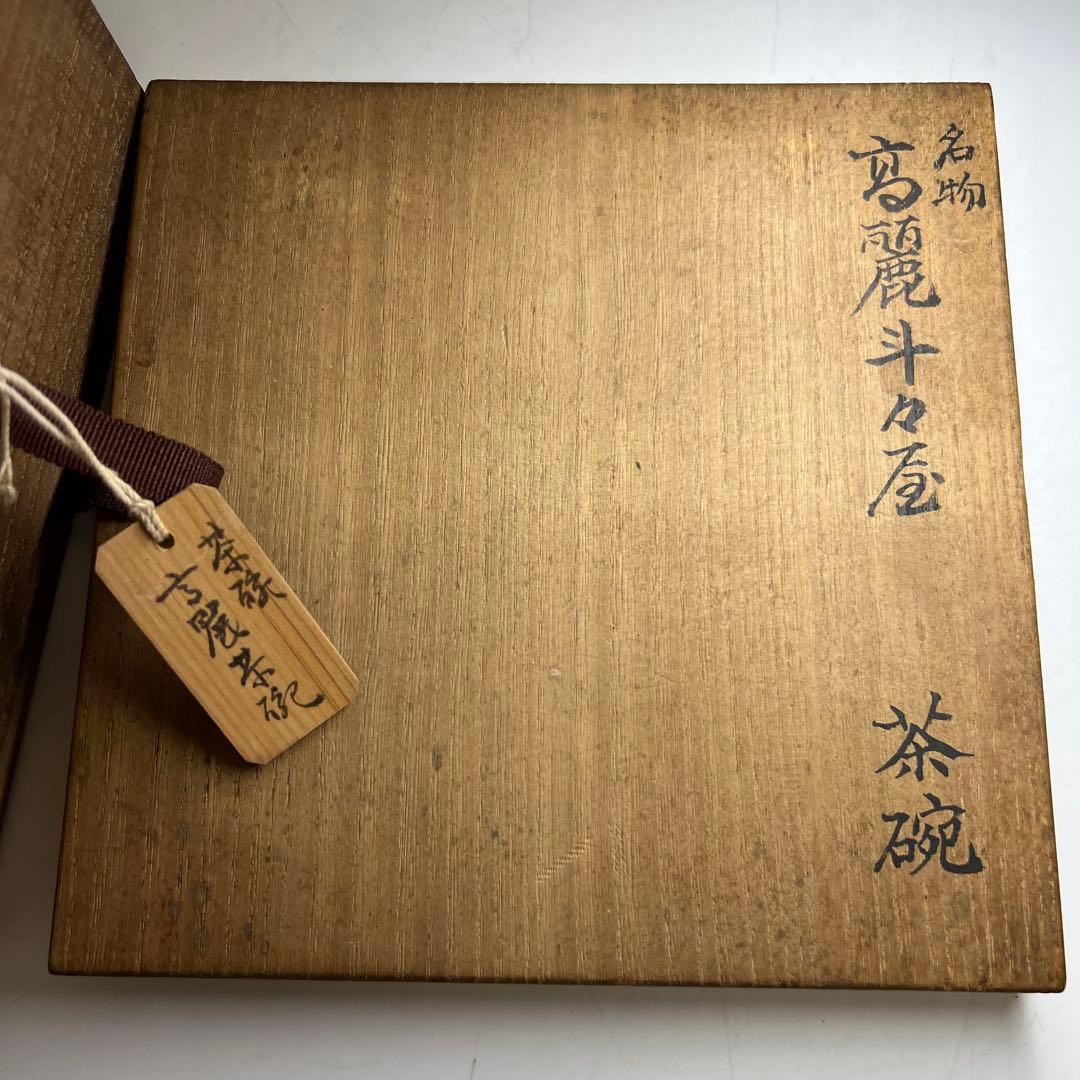 名物
高麗斗々屋
茶碗
茶碗
高麗茶碗